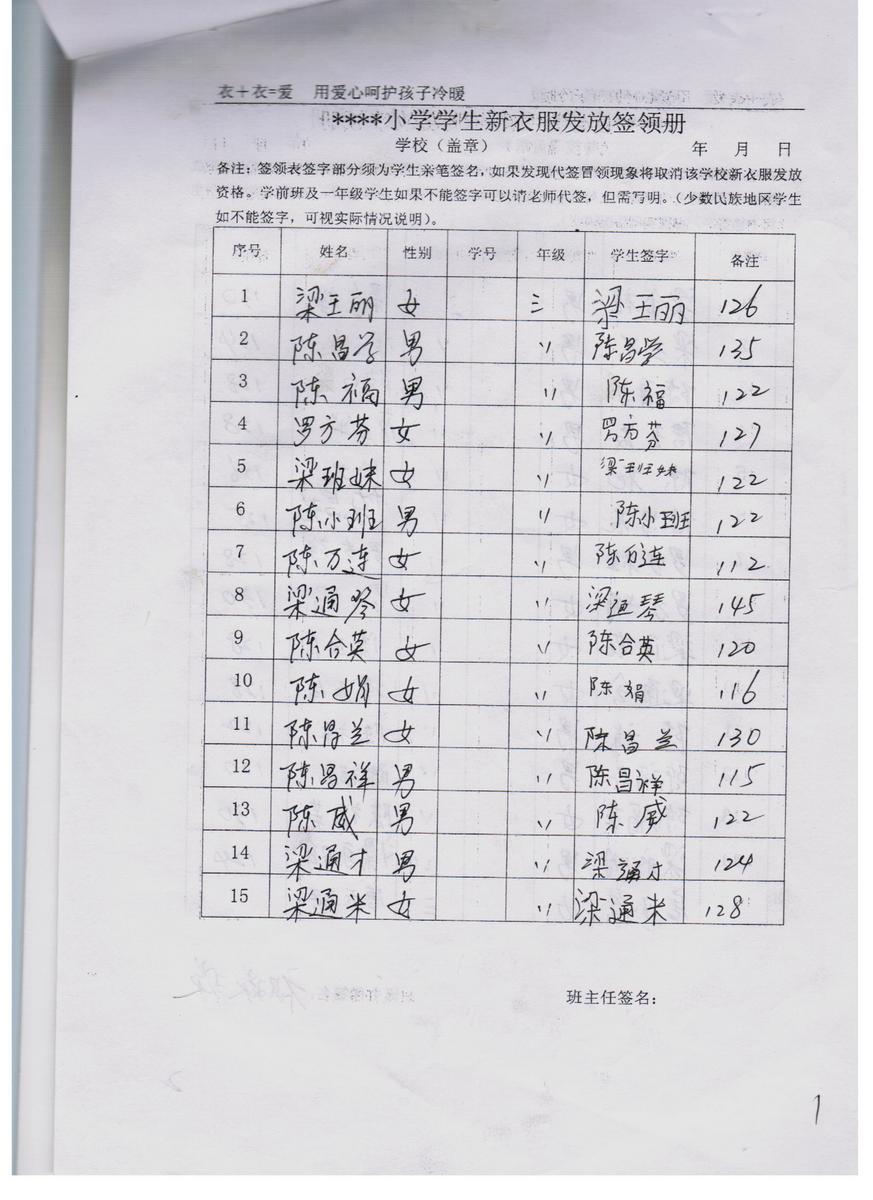 衣+衣=爱 用爱心呵护孩子冷暖
****小学学生新衣服发放签领册
学校（盖章） 年 月 日
备注：签领表签字部分须为学生亲笔签名，如果发现代签冒领现象将取消该学校新衣服发放
资格。学前班及一年级学生如果不能签字可以请老师代签，但需写明。（少数民族地区学生
如不能签字，可视实际情况说明）。
序号 姓名 性别 学号 年级 学生签字 备注
1 梁王丽 女 三 梁王丽 126
2 陈昌学 男 〃 陈昌学 135
3 陈福 男 〃 陈福 122
4 罗方芬 女 〃 罗方芬 127
5 梁班妹 女 〃 梁班妹 122
6 陈小班 男 〃 陈小班 122
7 陈万连 女 〃 陈万连 112
8 梁通琴 女 〃 梁通琴 145
9 陈合英 女 〃 陈合英 120
10 陈娟 女 〃 陈娟 116
11 陈昌兰 女 〃 陈昌兰 130
12 陈昌祥 男 〃 陈昌祥 115
13 陈威 男 〃 陈威 122
14 梁通才 男 〃 梁通才 124
15 梁通米 女 〃 梁通米 128
班主任签名：
1